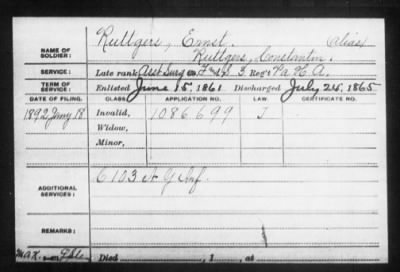 Ruttgers, Ernst. Alias
NAME OF SOLDIER: Ruttgers, Constantin.
SERVICE: Late rank Asst Surg F&S 3 Reg't Pa H.A.
TERM OF SERVICE: Enlisted June 15, 1861 Discharged July 25, 1865
DATE OF FILING. CLASS. APPLICATION NO. LAW. CERTIFICATE NO.
1892 Jany 18 Invalid, 1086699 J
Widow,
Minor,
ADDITIONAL SERVICES: 6103 Inf.
REMARKS:
Died , 1 , at